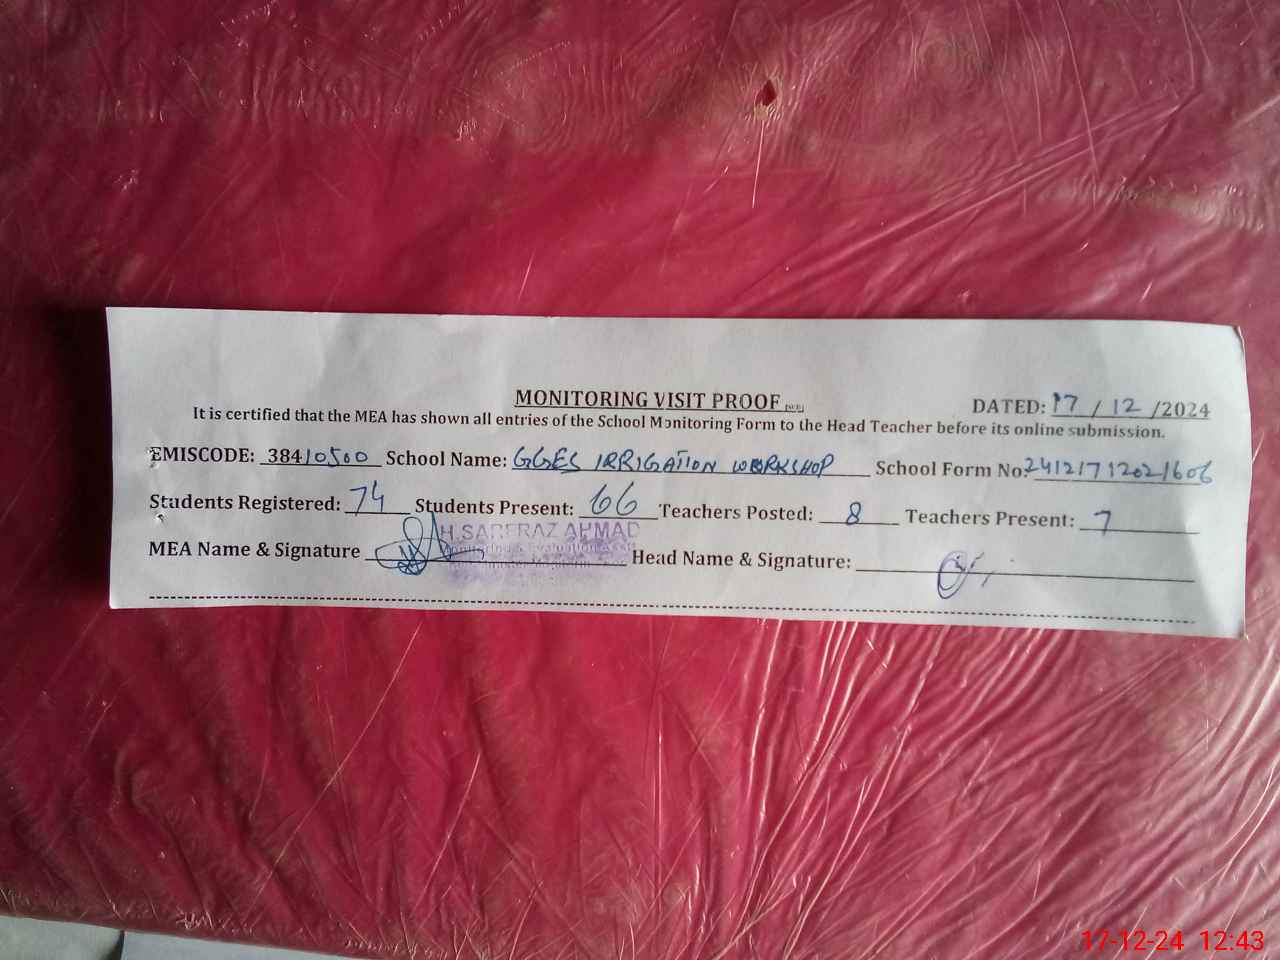 MONITORING VISIT PROOF
DATED: 17 / 12 /2024
It is certified that the MEA has shown all entries of the School Monitoring Form to the Head Teacher before its online submission.
EMISCODE: 38410500 School Name: GGES IRRIGATION WORKSHOP School Form No: 24121712021606
Students Registered: 74 Students Present: 66 Teachers Posted: 8 Teachers Present: 7
MEA Name & Signature H.SARFRAZ AHMAD Head Name & Signature:
Monitoring & Evaluation
17-12-24 12:43